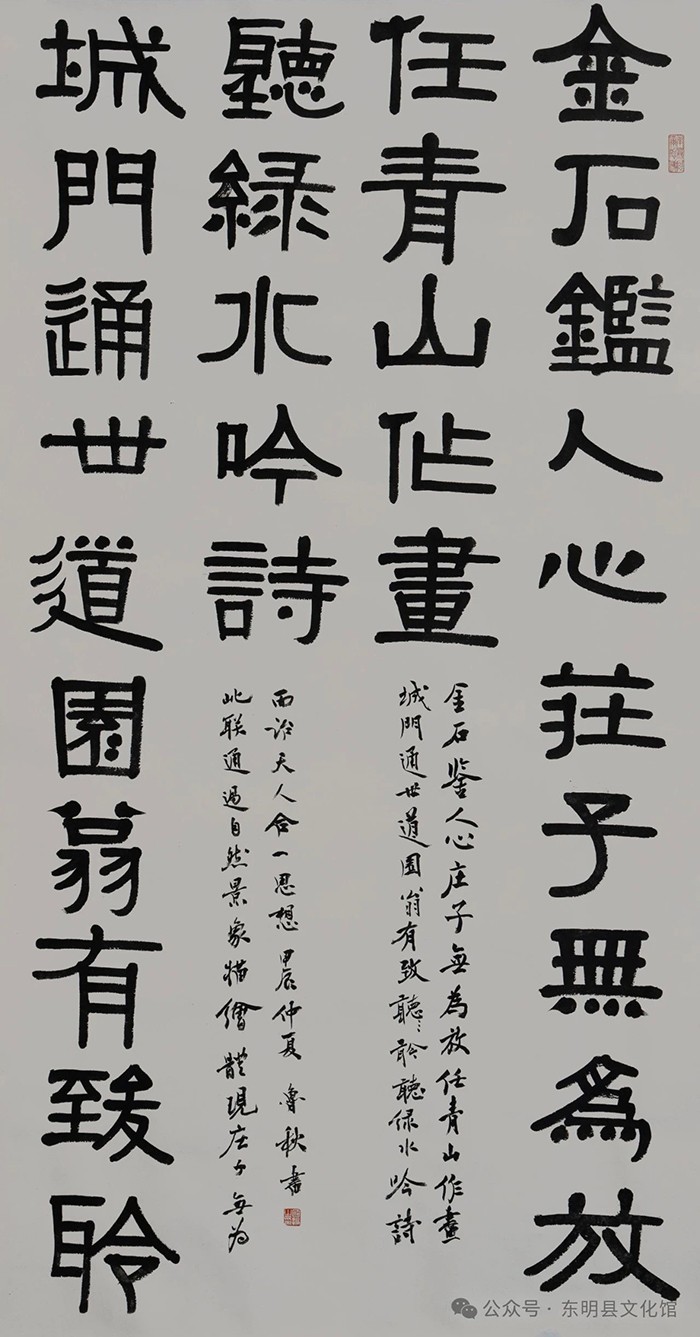 金石鑑人心莊子無為放
任青山作畫
城門通世道園翁有致聆
聽綠水吟詩
金石鉴人心庄子無為放任青山作畫
城門通世道園翁有致聽〻聆聽绿水吟詩
此联通過自然景象描繪體現庄子無为
而治天人合一思想 甲辰仲夏 魯秋書
公众号·东明县文化馆